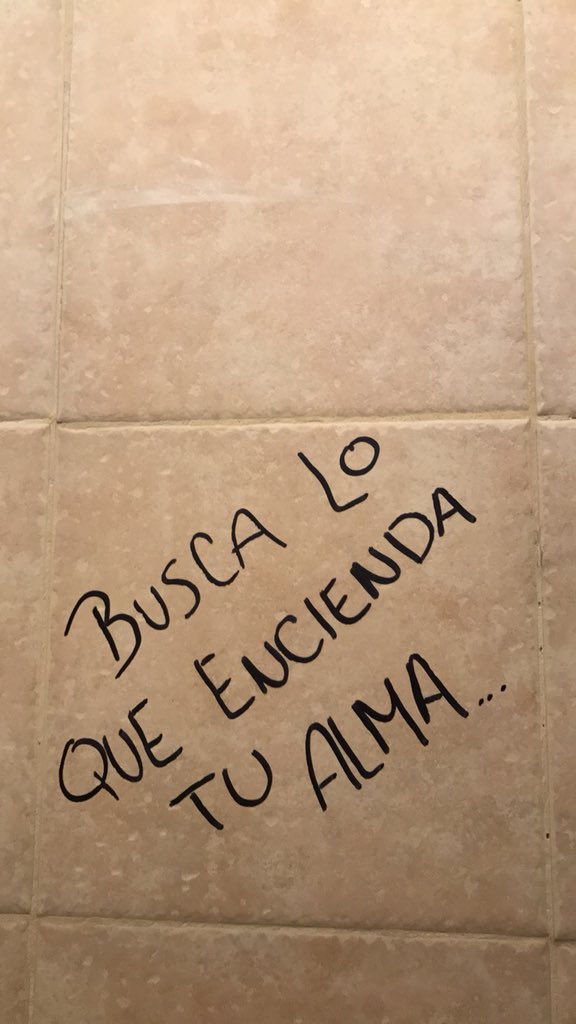 BUSCA LO
QUE ENCIENDA
TU ALMA...